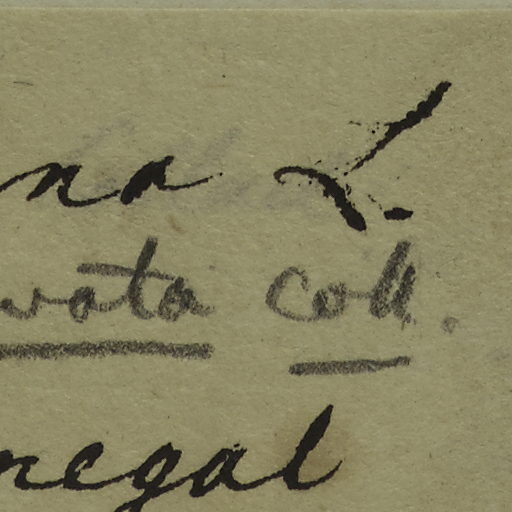 na L.
vata coll.
negal